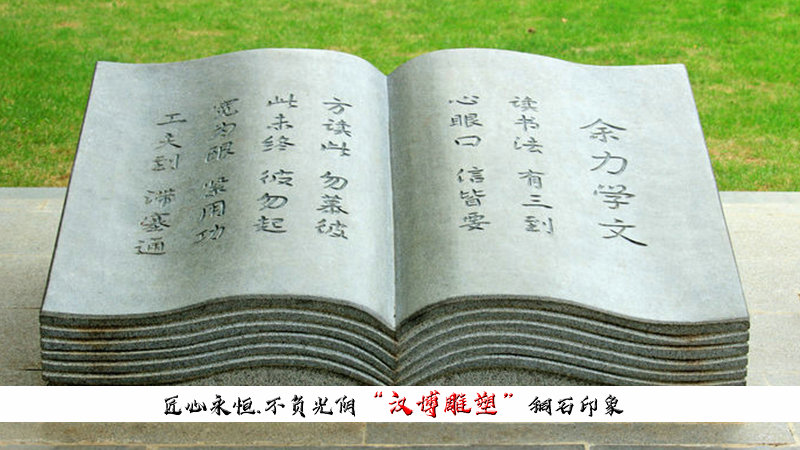 余力学文
读书法 有三到
心眼口 信皆要
方读此 勿慕彼
此未终 彼勿起
宽为限 紧用功
工夫到 滞塞通
匠心永恒.不负光阴“汉博雕塑”铜石印象